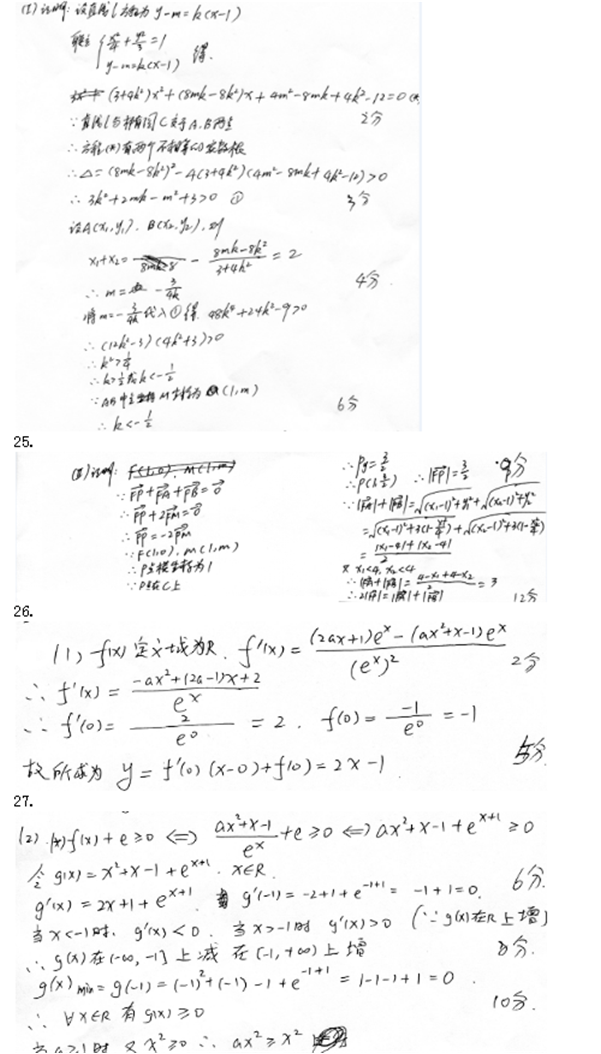 (I) 证明: 设直线l方程为 y-m=k(x-1)
联立 { x²/4 + y²/3 = 1
y-m=k(x-1) 得.
(3+4k²)x²+(8mk-8k²)x+4m²-8mk+4k²-12=0 (*)
2分
∵直线l与椭圆C交于A、B两点
∴方程(*)有两个不相等的实数根
∴△=(8mk-8k²)²-4(3+4k²)(4m²-8mk+4k²-12)>0
∴ 3k²+2mk-m²+3>0 ①
3分
设A(x₁,y₁), B(x₂,y₂), 则
x₁+x₂= - (8mk-8k²)/(3+4k²) = 2
4分
∴ m= -3/(4k)
将m=-3/(4k)代入①得. 48k⁴+24k²-9>0
∴(12k²-3)(4k²+3)>0
∴k²>1/4
∴k>1/2或k<-1/2
∵AB中点坐标M坐标为(1,m)
6分
∴ k<-1/2
25.
(II) 证明: F(1,0), M(1,m)
∵FP+FA+FB=0
∴FP+2FM=0
∴FP=-2FM
∵F(1,0), M(1,m)
∴P点横坐标为1
∵P点在C上
∴Py=3/2
∴P(1,3/2) ∴|FP|=3/2 9分
∵|FA|+|FB|=√((x₁-1)²+y₁²)+√((x₂-1)²+y₂²)
=√((x₁-1)²+3(1-x₁²/4))+√((x₂-1)²+3(1-x₂²/4))
=(|x₁-4|+|x₂-4|)/2
又 x₁<4, x₂<4
∴|FA|+|FB|=(4-x₁+4-x₂)/2=3
∴2|FP|=|FA|+|FB| 12分
26.
(1) f(x)定义域为R. f'(x)=((2ax+1)eˣ-(ax²+x-1)eˣ)/(eˣ)²
2分
∴ f'(x)=(-ax²+(2a-1)x+2)/eˣ
∴ f'(0)=2/e⁰=2. f(0)=-1/e⁰=-1
5分
故所求为 y=f'(0)(x-0)+f(0)=2x-1.
27.
(2) f(x)+e≥0 <=> (ax²+x-1)/eˣ+e≥0 <=> ax²+x-1+eˣ⁺¹≥0
令 g(x)=x²+x-1+eˣ⁺¹. x∈R. 6分.
g'(x)=2x+1+eˣ⁺¹. g'(-1)=-2+1+e⁻¹⁺¹=-1+1=0.
当x<-1时. g'(x)<0. 当x>-1时 g'(x)>0 (∵g'(x)在R上增)
∴g(x)在(-∞,-1]上减 在[-1,+∞)上增 8分.
g(x)min=g(-1)=(-1)²+(-1)-1+e⁻¹⁺¹=1-1-1+1=0.
10分.
∴ ∀x∈R 有g(x)≥0
当a≥1时 又x²≥0 ∴ ax²≥x²